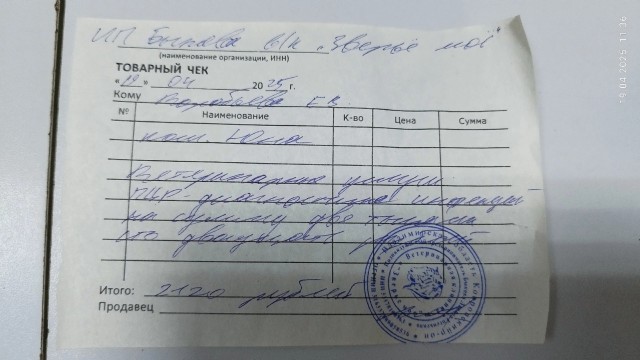 ИП Быкова в/к "Зверьё моё"
(наименование организации, ИНН)
ТОВАРНЫЙ ЧЕК
"19" 04 2025 г.
Кому Воробьева Е.В.
№ Наименование К-во Цена Сумма
кош. Юна
Ветеринарные услуги
ПЦР-диагностика инфекций
на сумму две тысячи
сто двадцать рублей
Итого: 2120 рублей
Продавец
19.04.2025 11:36